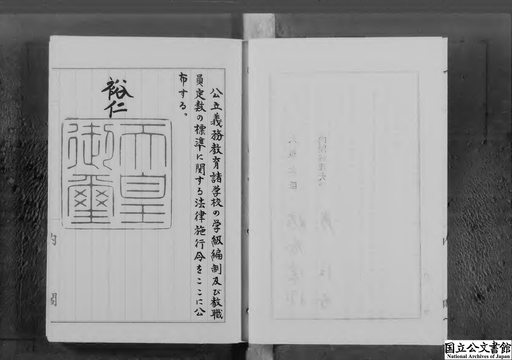 公立義務教育諸学校の学級編制及び教職
員定数の標準に関する法律施行令をここに公
布する。
裕仁
天皇
御璽
内閣
国立公文書館
National Archives of Japan